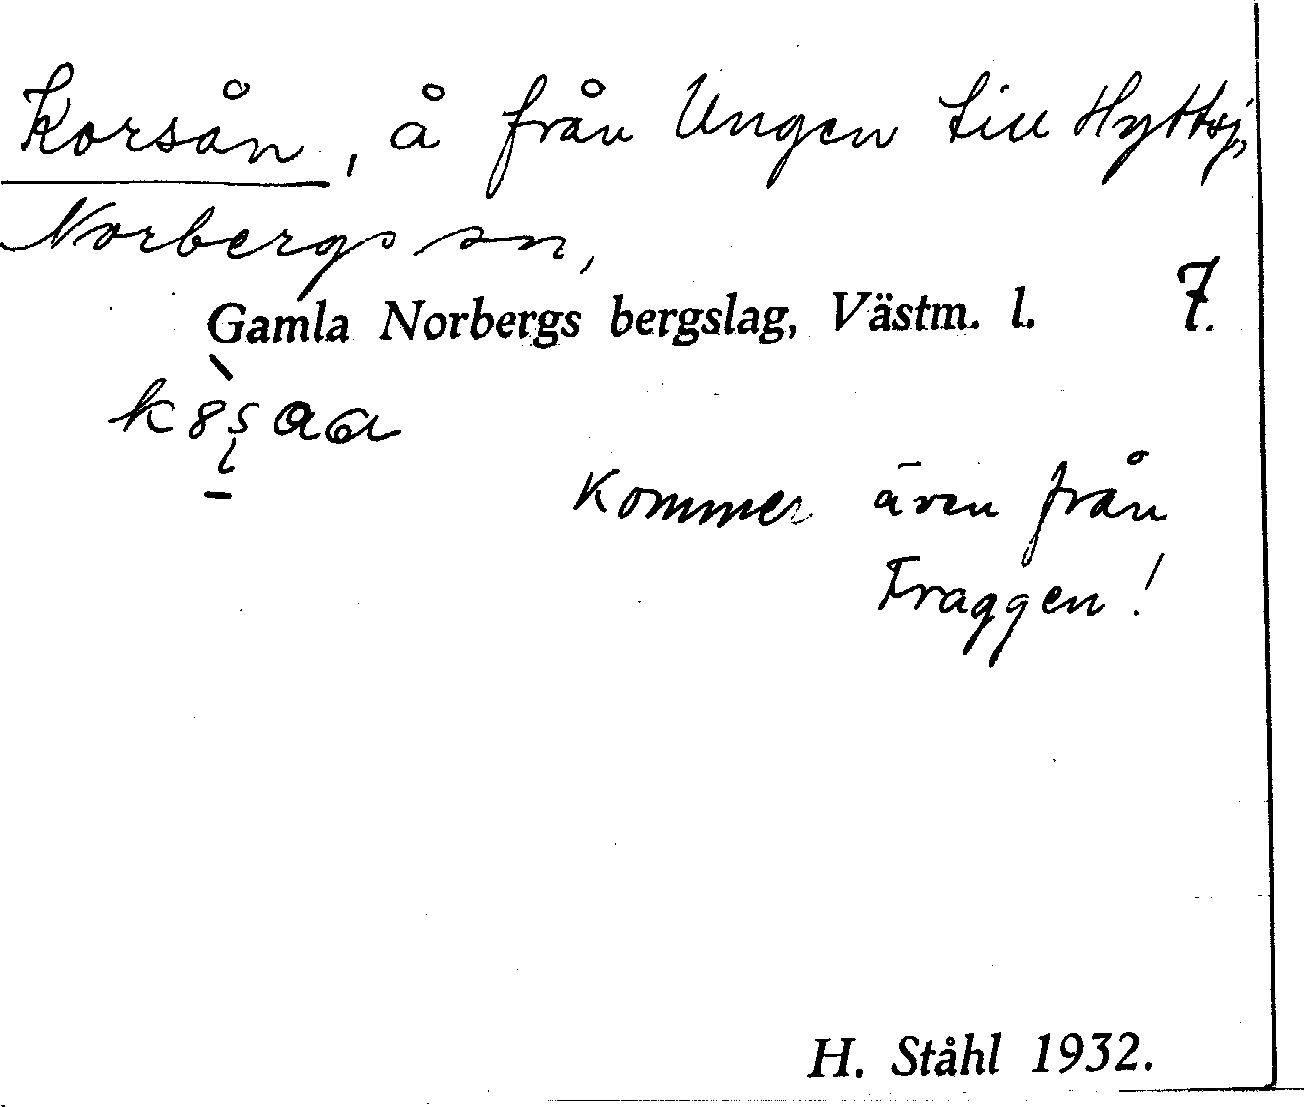 Korsån, å från Ungen till Hyttsj,
Norbergs sn,
Gamla Norbergs bergslag, Västm. l. 7.
Kommer även från
Fraggen!
H. Ståhl 1932.